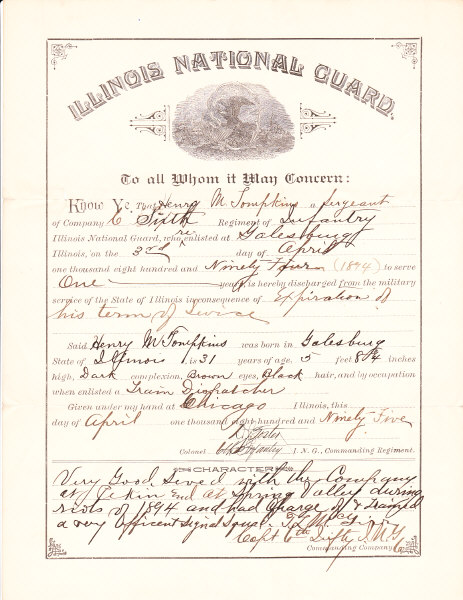 ILLINOIS NATIONAL GUARD.
To all Whom it May Concern:
KNOW YE, That Henry M Tompkins a Sergeant
of Company C Sixth Regiment of Infantry
Illinois National Guard, who re enlisted at Galesburg
Illinois, on the 3rd day of April
one thousand eight hundred and Ninety Four (1894) to serve
One year, is hereby discharged from the military
service of the State of Illinois in consequence of Expiration of
his term of Service
Said Henry M Tompkins was born in Galesburg
State of Illinois is 31 years of age, 5 feet 8 3/4 inches
high, Dark complexion, Brown eyes, Black hair, and by occupation
when enlisted a Train Dispatcher
Given under my hand at Chicago Illinois, this
day of April one thousand eight hundred and Ninety Five
D. Foster
Colonel 6th Infantry I. N. G., Commanding Regiment.
CHARACTER:
Very Good. Served with the Company
at Pekin and at Spring Valley during
riots of 1894 and had Charge of & Trained
a very efficient Signal Squad.
Capt 6th Infty I.N.G
Commanding Company C